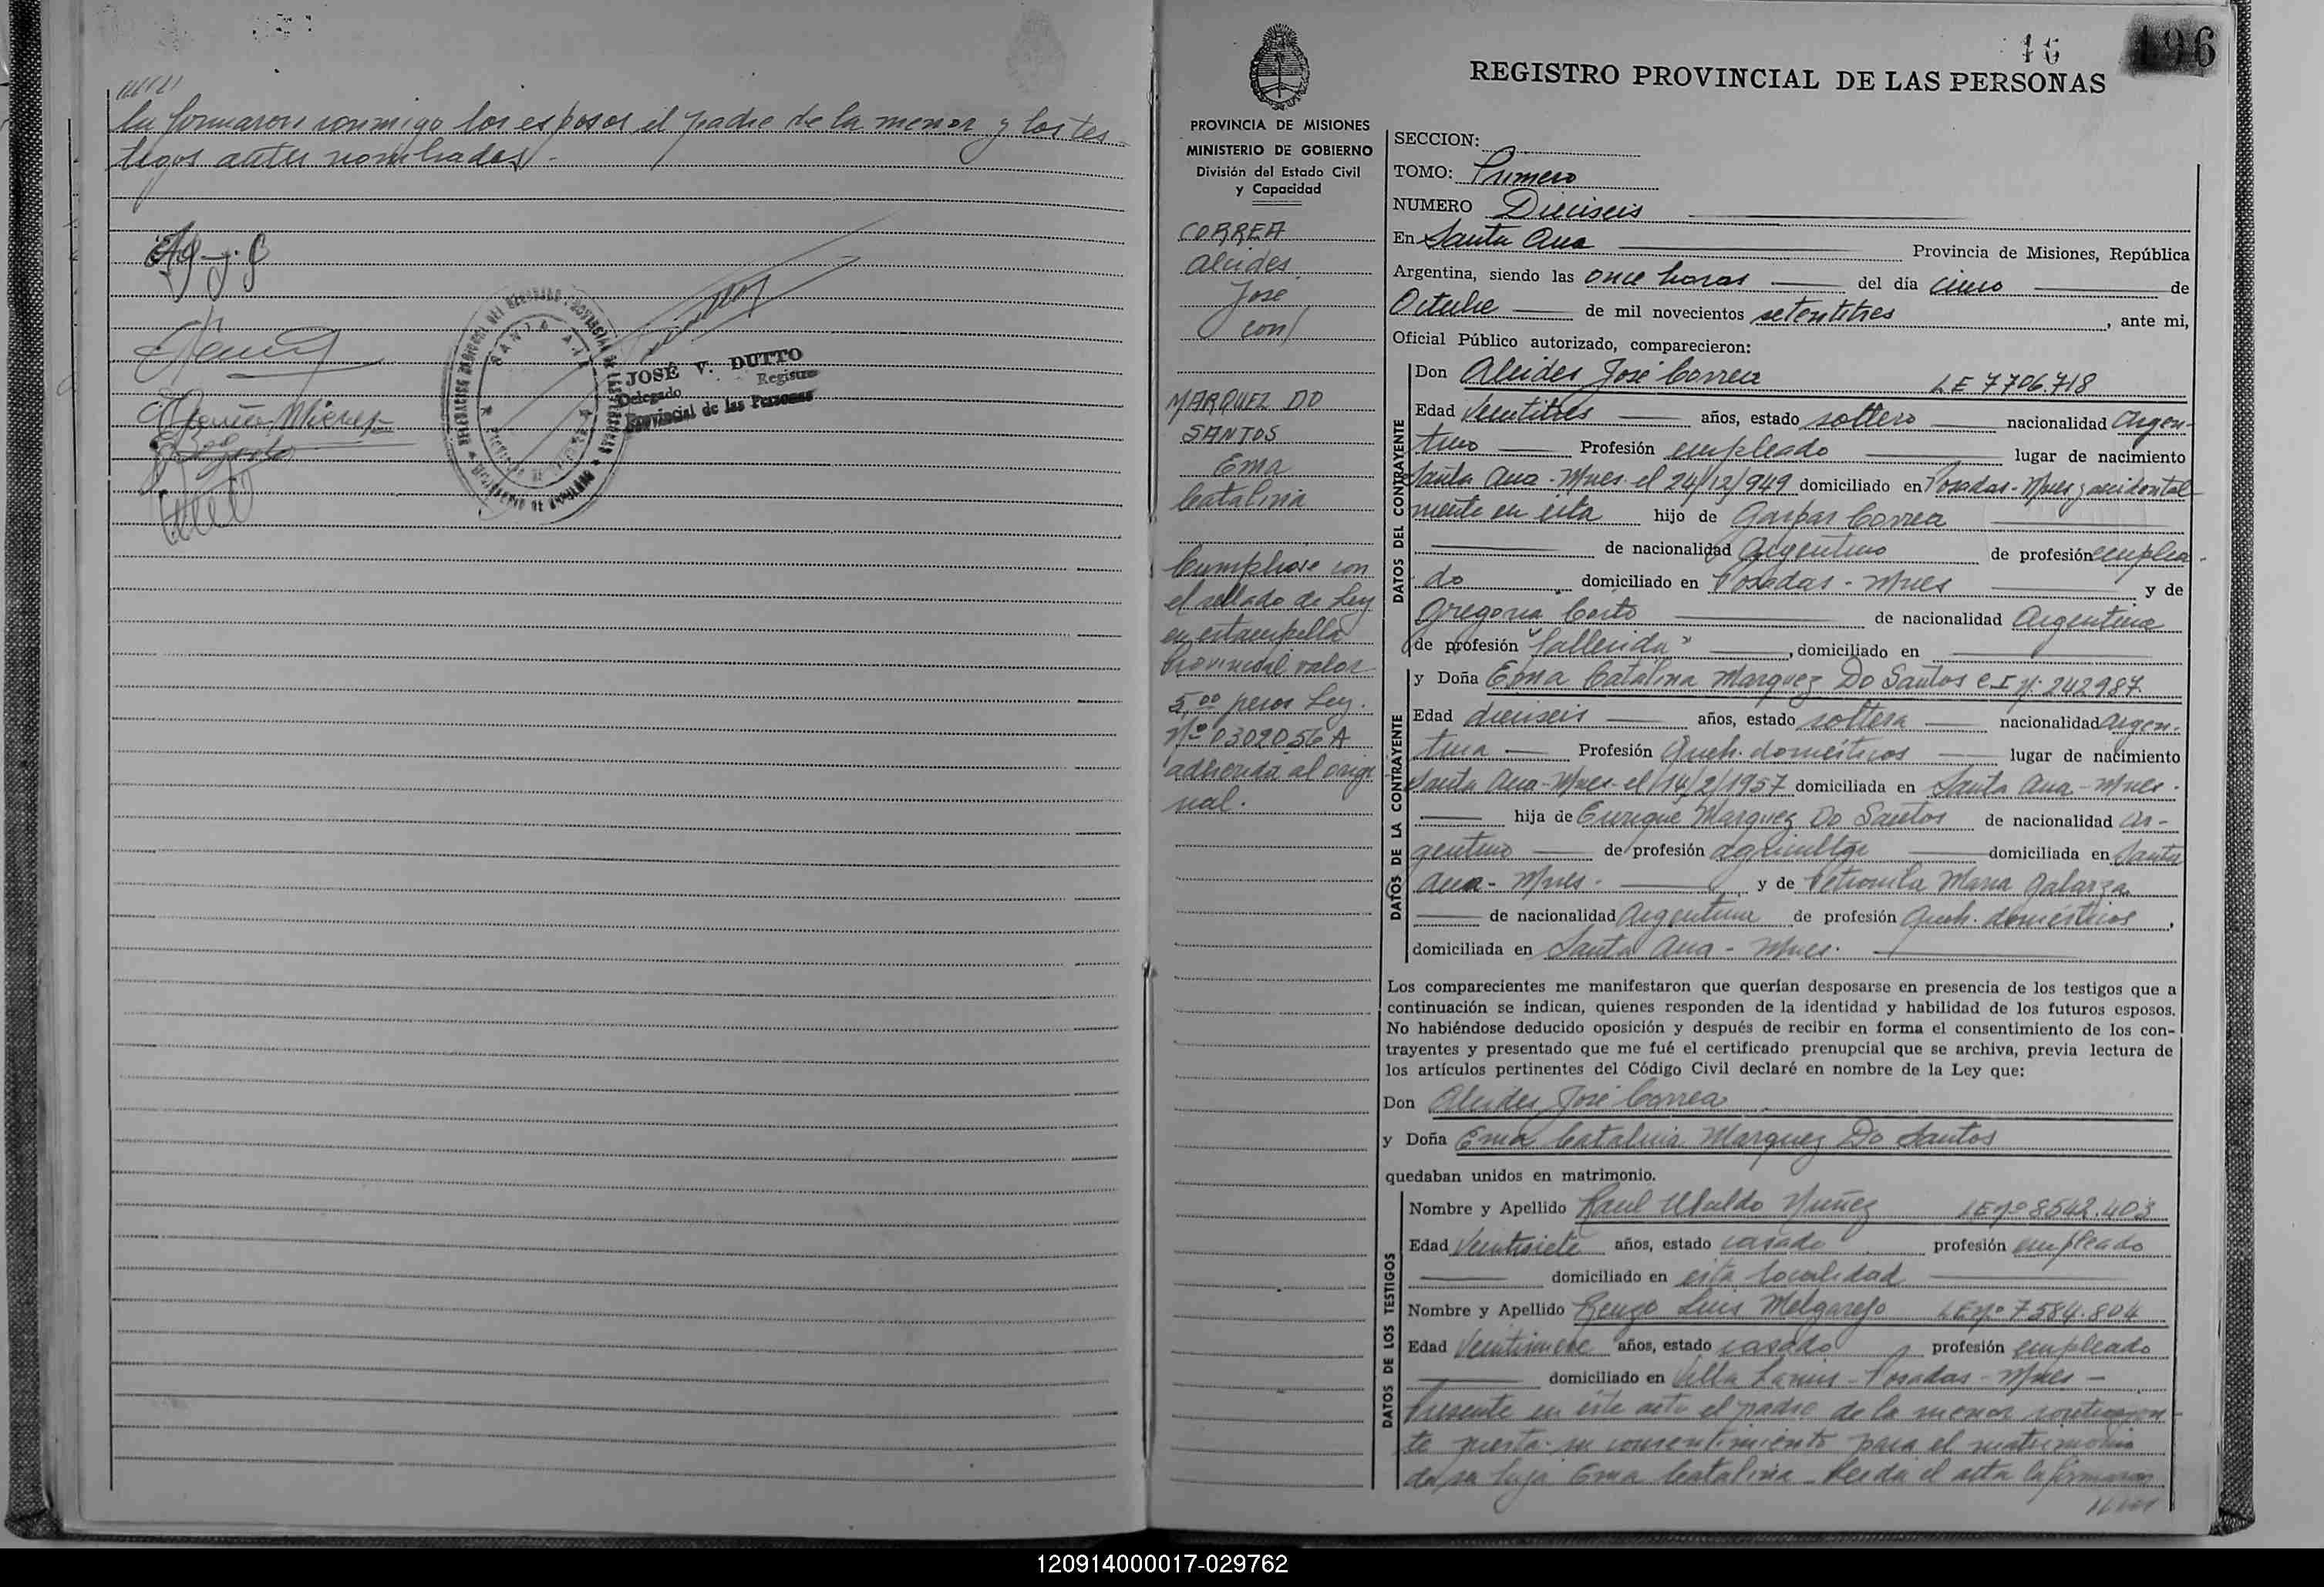 la firmaron conmigo los esposos el padre de la menor y los tes
tigos antes nombrados.-
SANTA ANA
JOSÉ V. DUTTO
Delegado Registro
Provincial de las Personas
16 196
REGISTRO PROVINCIAL DE LAS PERSONAS
PROVINCIA DE MISIONES
MINISTERIO DE GOBIERNO
División del Estado Civil
y Capacidad
CORREA
Alcides
José
con/
MARQUEZ DO
SANTOS
Ema
Catalina
Cumpliose con
el sellado de Ley
en estampilla
Provincial valor
5,00 pesos Ley.
Nº 0302056 A
adherida al origi
nal.
SECCION:
TOMO: Primero
NUMERO Dieciseis
En Santa Ana Provincia de Misiones, República
Argentina, siendo las once horas del día cinco de
Octubre de mil novecientos setentitres, ante mi,
Oficial Público autorizado, comparecieron:
DATOS DEL CONTRAYENTE
Don Alcides José Correa LE 7706.718
Edad Veintitres años, estado soltero nacionalidad Argen-
tino Profesión empleado lugar de nacimiento
Santa Ana - Mnes. el 24/12/949 domiciliado en Posadas - Mnes y accidental
mente en ésta hijo de Gaspar Correa
de nacionalidad Argentino de profesión emplea-
do domiciliado en Posadas - Mnes y de
Gregoria de nacionalidad Argentina
de profesión "Fallecida", domiciliado en
DATOS DE LA CONTRAYENTE
y Doña Ema Catalina Marquez Do Santos C.I Nº 242987.
Edad dieciseis años, estado soltera nacionalidad Argen-
tina Profesión Queh. domésticos lugar de nacimiento
Santa Ana - Mnes - el 14/2/1957 domiciliada en Santa Ana - Mnes.
hija de Enrique Marquez Do Santos de nacionalidad Ar-
gentino de profesión agricultor domiciliada en Santa
Ana - Mnes. y de Petronila Maria Galarza
de nacionalidad Argentina de profesión Queh. domésticos,
domiciliada en Santa Ana - Mnes.
Los comparecientes me manifestaron que querían desposarse en presencia de los testigos que a
continuación se indican, quienes responden de la identidad y habilidad de los futuros esposos.
No habiéndose deducido oposición y después de recibir en forma el consentimiento de los con-
trayentes y presentado que me fué el certificado prenupcial que se archiva, previa lectura de
los artículos pertinentes del Código Civil declaré en nombre de la Ley que:
Don Alcides José Correa
y Doña Ema Catalina Marquez Do Santos
quedaban unidos en matrimonio.
DATOS DE LOS TESTIGOS
Nombre y Apellido Raul Ubaldo Nuñez LE Nº 8542.403
Edad Veintisiete años, estado casado profesión empleado
domiciliado en esta localidad
Nombre y Apellido Renzo Luis Melgarejo LE Nº 7584.804
Edad Veintinueve años, estado casado profesión empleado
domiciliado en Villa Lanus - Posadas - Mnes -
Presente en éste acto el padre de la menor contrayen
te presta su consentimiento para el matrimonio
de su hija Ema Catalina - Leida el acta la firmaron
120914000017-029762